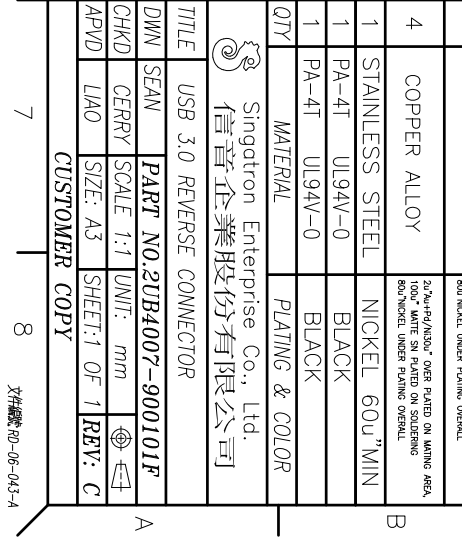 80u"NICKEL UNDER PLATING OVERALL
4 COPPER ALLOY 2u"Au+Pd/Ni30u" OVER PLATED ON MATING AREA,
100u" MATTE SN PLATED ON SOLDERING
80u"NICKEL UNDER PLATING OVERALL
1 STAINLESS STEEL NICKEL 60u"MIN
1 PA-4T UL94V-0 BLACK
1 PA-4T UL94V-0 BLACK
QTY MATERIAL PLATING & COLOR
Singatron Enterprise Co., Ltd.
信音企業股份有限公司
TITLE USB 3.0 REVERSE CONNECTOR
DWN SEAN PART NO.2UB4007-900101F
CHKD CERRY SCALE 1:1 UNIT: mm
APVD LIAO SIZE: A3 SHEET:1 OF 1 REV: C
CUSTOMER COPY
7 8
A
B
RD-06-043-A